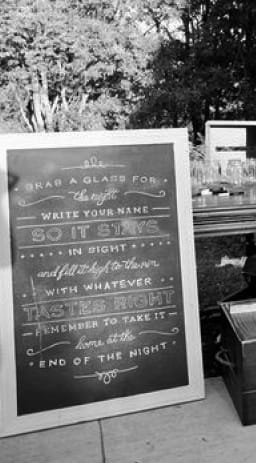 GRAB A GLASS FOR
the night
WRITE YOUR NAME
SO IT STAYS
IN SIGHT
and fill it high to the rim
WITH WHATEVER
TASTES RIGHT
REMEMBER TO TAKE IT
home at the
END OF THE NIGHT